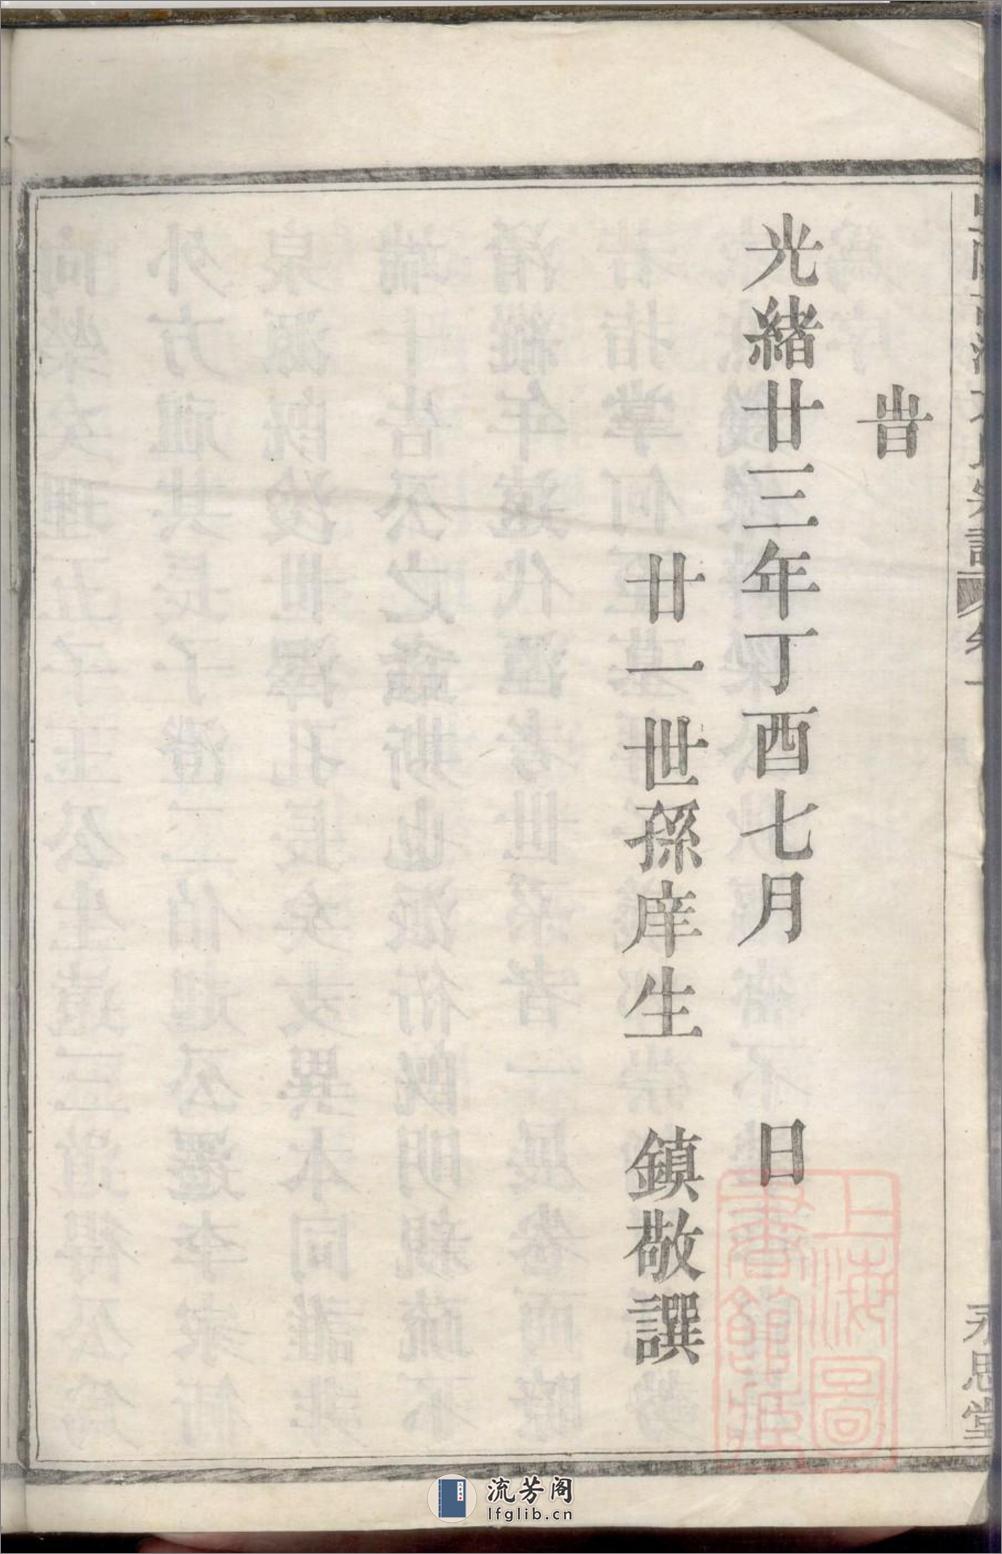 旹
光緒廿三年丁酉七月 日
廿一世孫庠生 鎮敬譔
永思堂
上海圖
書館藏
流芳阁
lfglib.cn